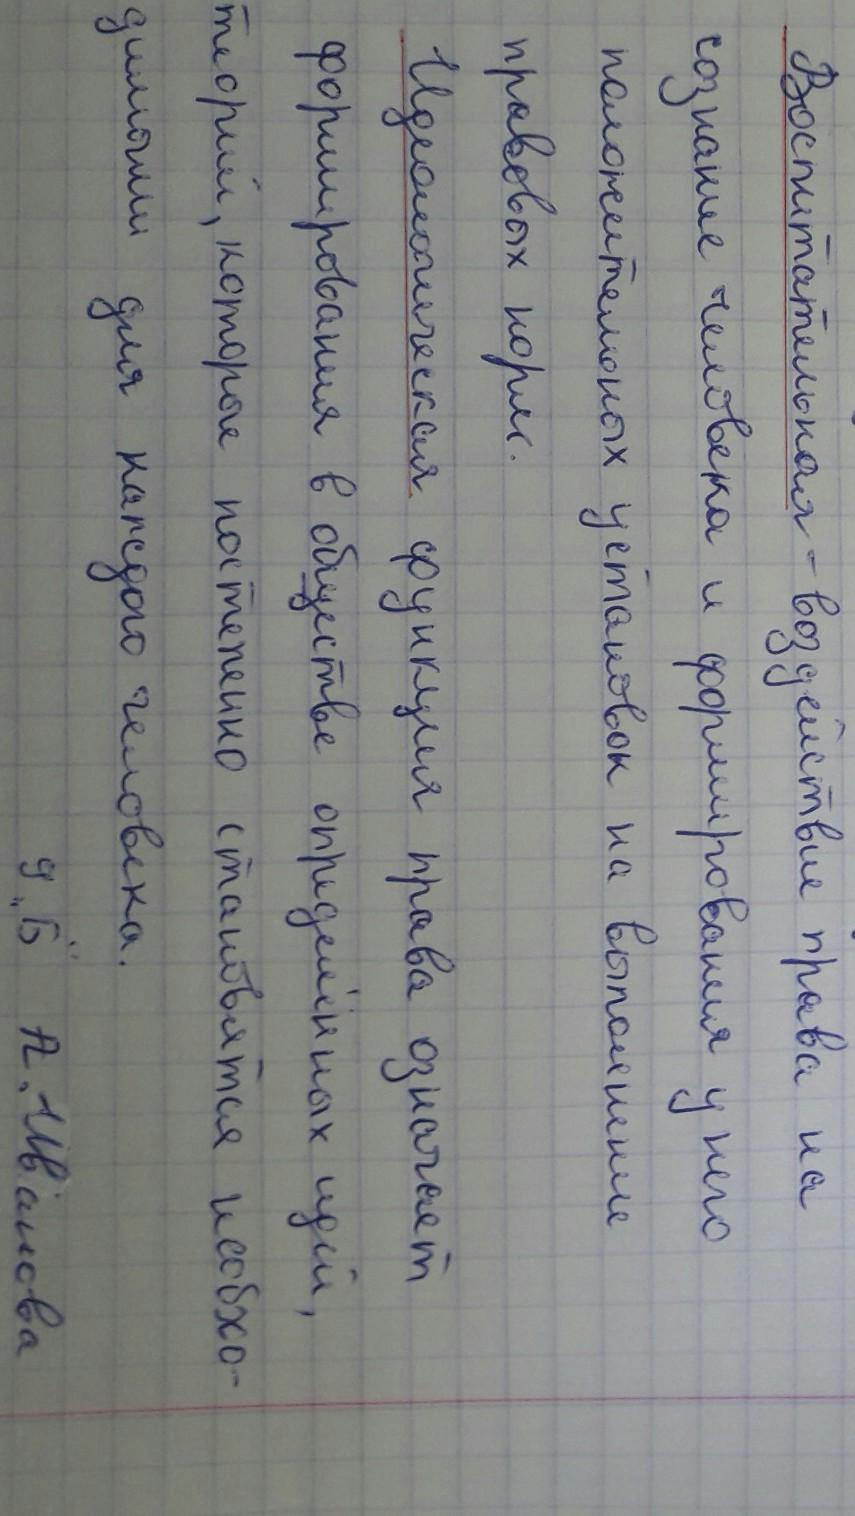 Воспитательная - воздействие права на
сознание человека и формирования у него
положительных установок на выполнение
правовых норм.
Идеологическая функция права означает
формирования в обществе определённых идей,
теорий, которые постепенно становятся необхо-
димыми для каждого человека.
9 „Б" А. Иванова